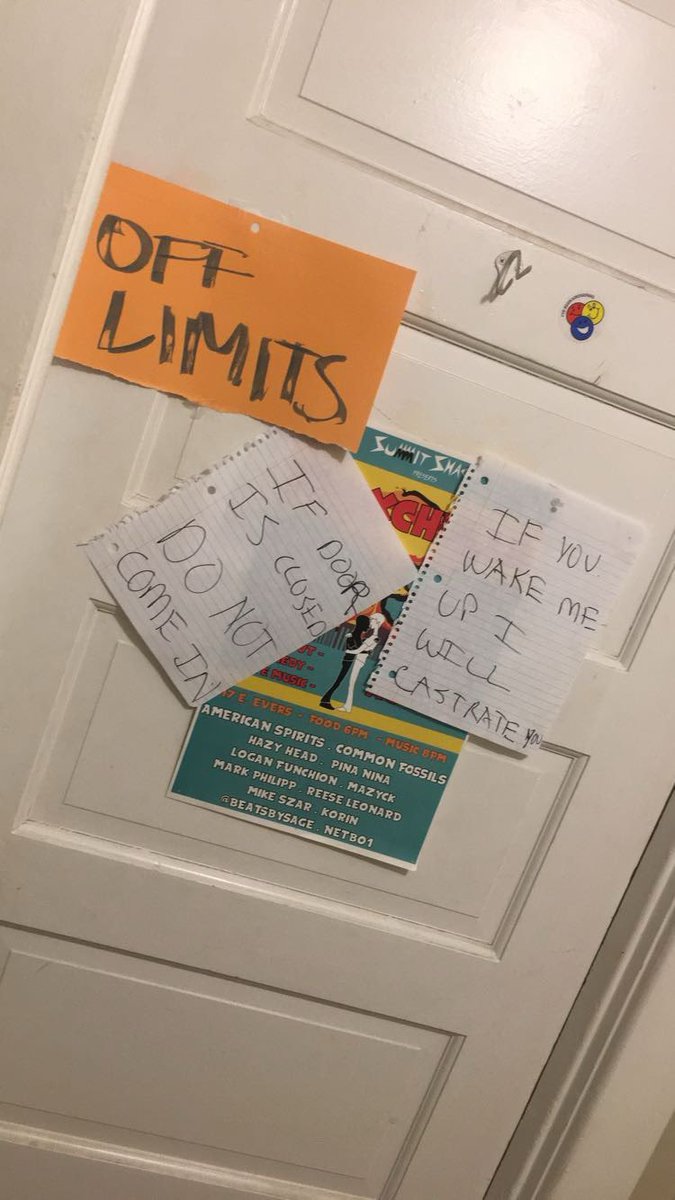 OFF
LIMITS
IF DOOR
IS CLOSED
DO NOT
COME IN
IF YOU
WAKE ME
UP I
WILL
CASTRATE YOU
SUMMIT
PRESENTS
MUSIC -
E. EVERS - FOOD 6PM - MUSIC 8PM
AMERICAN SPIRITS . COMMON FOSSILS
HAZY HEAD . PINA NINA
LOGAN FUNCHION . MAZYCK
MARK PHILIPP . REESE LEONARD
MIKE SZAR . KORIN
@BEATSBYSAGE . NETBO1